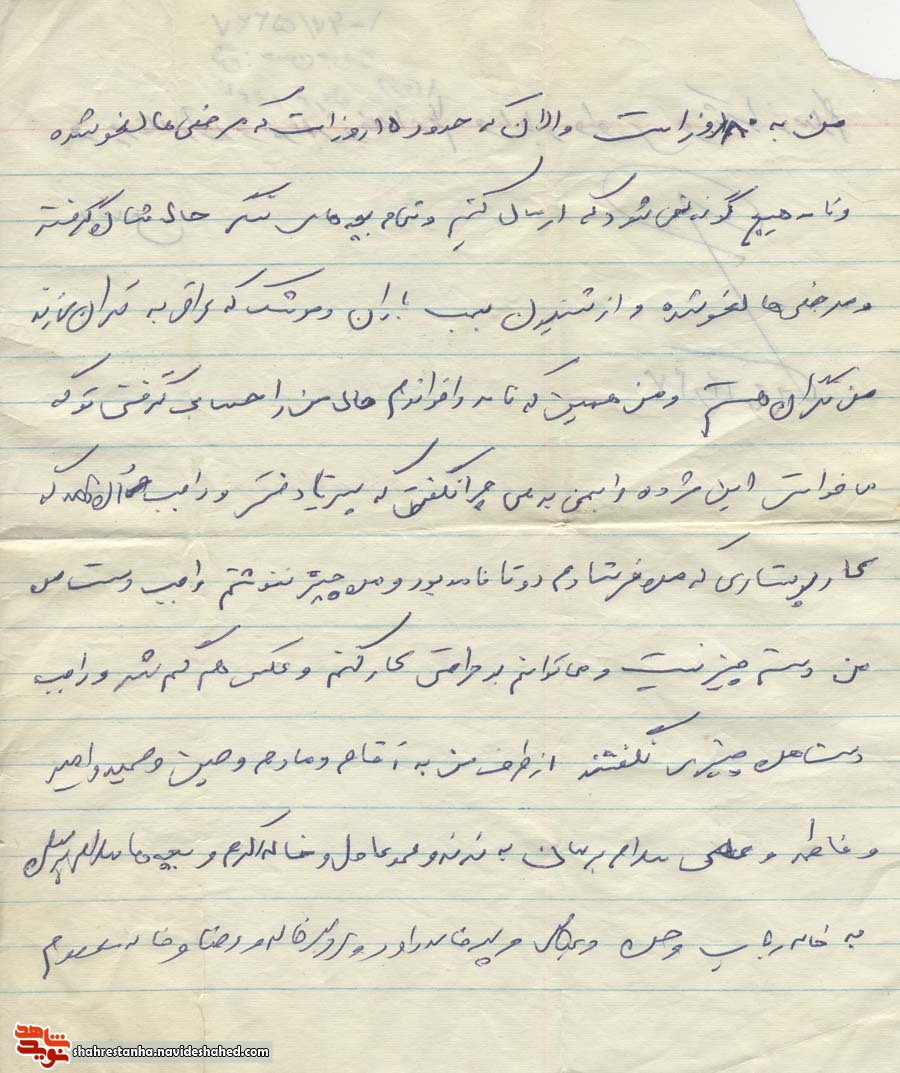 من به ۱۸۰ روز است والان که حدود ۱۵ روز است که مرخصی ها لغو شده
ونامه هیچ گونه نمی شود که ارسال کنیم وتمام بچه های سنگر حال شان گرفته
ومرخصی ها لغو شده و از شنیدن بمب باران وموشک که عراق به تهران میزند
من نگران هستم ومن همین که نامه را خواندم حال من را حسابی گرفتی تو که
می خواستی این مژده را بمن بدهی چرا نگفتی که پسر یا دختر و راجب که
کارپستاری که من فرستادم دو تا نامه بود و من چیز ننوشتم راجب دست من
من دستم چیز نیست و می توانم به راحتی کار کنم و عکس هم گم شد و راجب
دست من چیزی نگفتند از طرف من به آقام ومادرم وحسین وحمید وامید
و فاطمه و سلام برسان به ننه ومحمد عامل وخاله اکرم و بچه ها سلام برسان
به خاله رباب وحسن و و و رضا و خاله معصوم
شاهد
نوید
shahrestanha.navideshahed.com